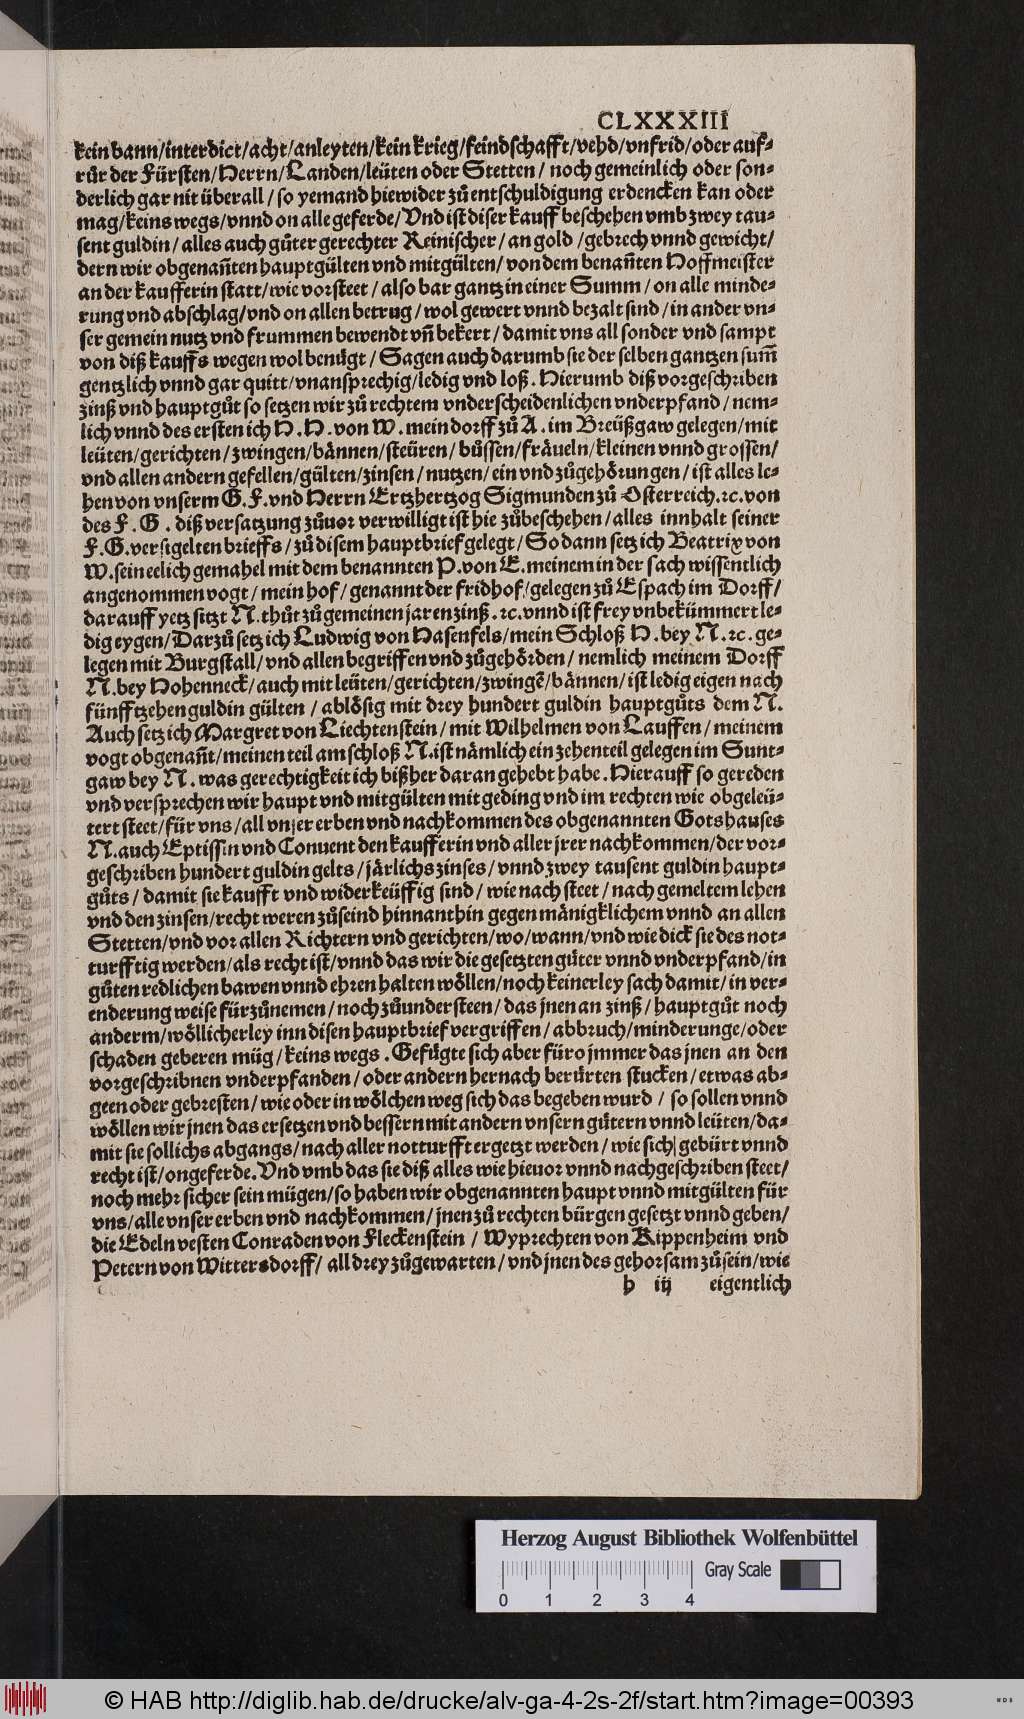 CLXXXIII
kein bann/interdict/acht/anleyten/kein krieg/feindschafft/vehd/vnfrid/oder auf-
růr der Fürsten/Herrn/Landen/leüten oder Stetten / noch gemeinlich oder son-
derlich gar nit überall / so yemand hiewider zů entschuldigung erdencken kan oder
mag/keins wegs/vnnd on alle geferde/Vnd ist diser kauff beschehen vmb zwey tau-
sent guldin / alles auch gůter gerechter Reinischer / an gold /gebrech vnnd gewicht/
dern wir obgenañten hauptgülten vnd mitgülten/ von dem benañten Hoffmeister
an der kaufferin statt/wie vorsteet / also bar gantz in einer Summ / on alle minde-
rung vnd abschlag/vnd on allen betrug / wol gewert vnnd bezalt sind / in ander vn-
ser gemein nutz vnd frummen bewendt vñ bekert / damit vns all sonder vnd sampt
von diß kauffs wegen wol benügt / Sagen auch darumb sie der selben gantzen sum̃
gentzlich vnnd gar quitt/vnansprechig/ledig vnd loß. Hierumb diß vorgeschriben
zinß vnd hauptgůt so setzen wir zů rechtem vnderscheidenlichen vnderpfand / nem-
lich vnnd des ersten ich H.H. von W. mein dorff zů A. im Breüßgaw gelegen/mit
leüten/gerichten/zwingen/bännen/steüren/ bůssen/fräueln/kleinen vnnd grossen/
vnd allen andern gefellen/gülten/zinsen / nutzen/ein vnd zůgehörungen / ist alles le-
hen von vnserm G.F. vnd Herrn Ertzhertzog Sigmunden zů Osterreich.ꝛc. von
des F.G. diß versatzung zůuor verwilligt ist hie zůbeschehen/alles innhalt seiner
F.G. versigelten brieffs/zů disem hauptbrief gelegt/So dann setz ich Beatrix von
W. sein eelich gemahel mit dem benannten P. von E. meinem in der sach wissentlich
angenommen vogt/mein hof/genannt der fridhof/gelegen zů Espach im Dorff/
darauff yetz sitzt N. thůt zů gemeinen jaren zinß.ꝛc. vnnd ist frey vnbekümmert le-
dig eygen/Darzů setz ich Ludwig von Hasenfels/mein Schloß H. bey N.ꝛc. ge-
legen mit Burgstall/vnd allen begriffen vnd zůgehörden/ nemlich meinem Dorff
N. bey Hohenneck/auch mit leüten/gerichten/zwingẽ/bännen/ist ledig eigen nach
fünfftzehen guldin gülten / ablösig mit drey hundert guldin hauptgůts dem N.
Auch setz ich Margret von Liechtenstein / mit Wilhelmen von Lauffen / meinem
vogt obgenañt/meinen teil am schloß N. ist nämlich ein zehenteil gelegen im Sunt-
gaw bey N. was gerechtigkeit ich bißher daran gehebt habe. Hierauff so gereden
vnd versprechen wir haupt vnd mitgülten mit geding vnd im rechten wie obgeleü-
tert steet/für vns/all vnser erben vnd nachkommen des obgenannten Gotshauses
N. auch Eptissin vnd Conuent den kaufferin vnd aller jrer nachkommen/der vor-
geschriben hundert guldin gelts/järlichs zinses/vnnd zwey tausent guldin haupt-
gůts/damit sie kaufft vnd widerkeüffig sind/wie nach steet/nach gemeltem lehen
vnd den zinsen/recht weren zůseind hinnanthin gegen mänigklichem vnnd an allen
Stetten/vnd vor allen Richtern vnd gerichten/wo/wann/vnd wie dick sie des not-
turfftig werden/als recht ist/vnnd das wir die gesetzten güter vnnd vnderpfand/in
gůten redlichen bawen vnnd ehren halten wöllen/noch keinerley sach damit/in ver-
enderung weise fürzůnemen/noch zůundersteen/das jnen an zinß/hauptgůt noch
anderm/wöllicherley inn disen hauptbrief vergriffen/abbruch/minderunge/oder
schaden geberen müg/keins wegs. Gefügte sich aber füro jmmer das jnen an den
vorgeschribnen vnderpfanden/oder andern hernach berürten stucken/etwas ab-
geen oder gebresten/wie oder in wölchen weg sich das begeben wurd / so sollen vnnd
wöllen wir jnen das ersetzen vnd bessern mit andern vnsern gütern vnnd leüten/da-
mit sie sollichs abgangs/nach aller notturfft ergetzt werden/wie sich gebürt vnnd
recht ist/ongeferde. Vnd vmb das sie diß alles wie hieuor vnnd nachgeschriben steet/
noch mehr sicher sein mügen/so haben wir obgenannten haupt vnnd mitgülten für
vns/alle vnser erben vnd nachkommen/jnen zů rechten bürgen gesetzt vnnd geben/
die Edeln vesten Conraden von Fleckenstein / Wyprechten von Kippenheim vnd
Petern von Wittersdorff/ all drey zůgewarten/vnd jnen des gehorsam zůsein/wie
h iij eigentlich
Herzog August Bibliothek Wolfenbüttel
Gray Scale
0 1 2 3 4
© HAB http://diglib.hab.de/drucke/alv-ga-4-2s-2f/start.htm?image=00393